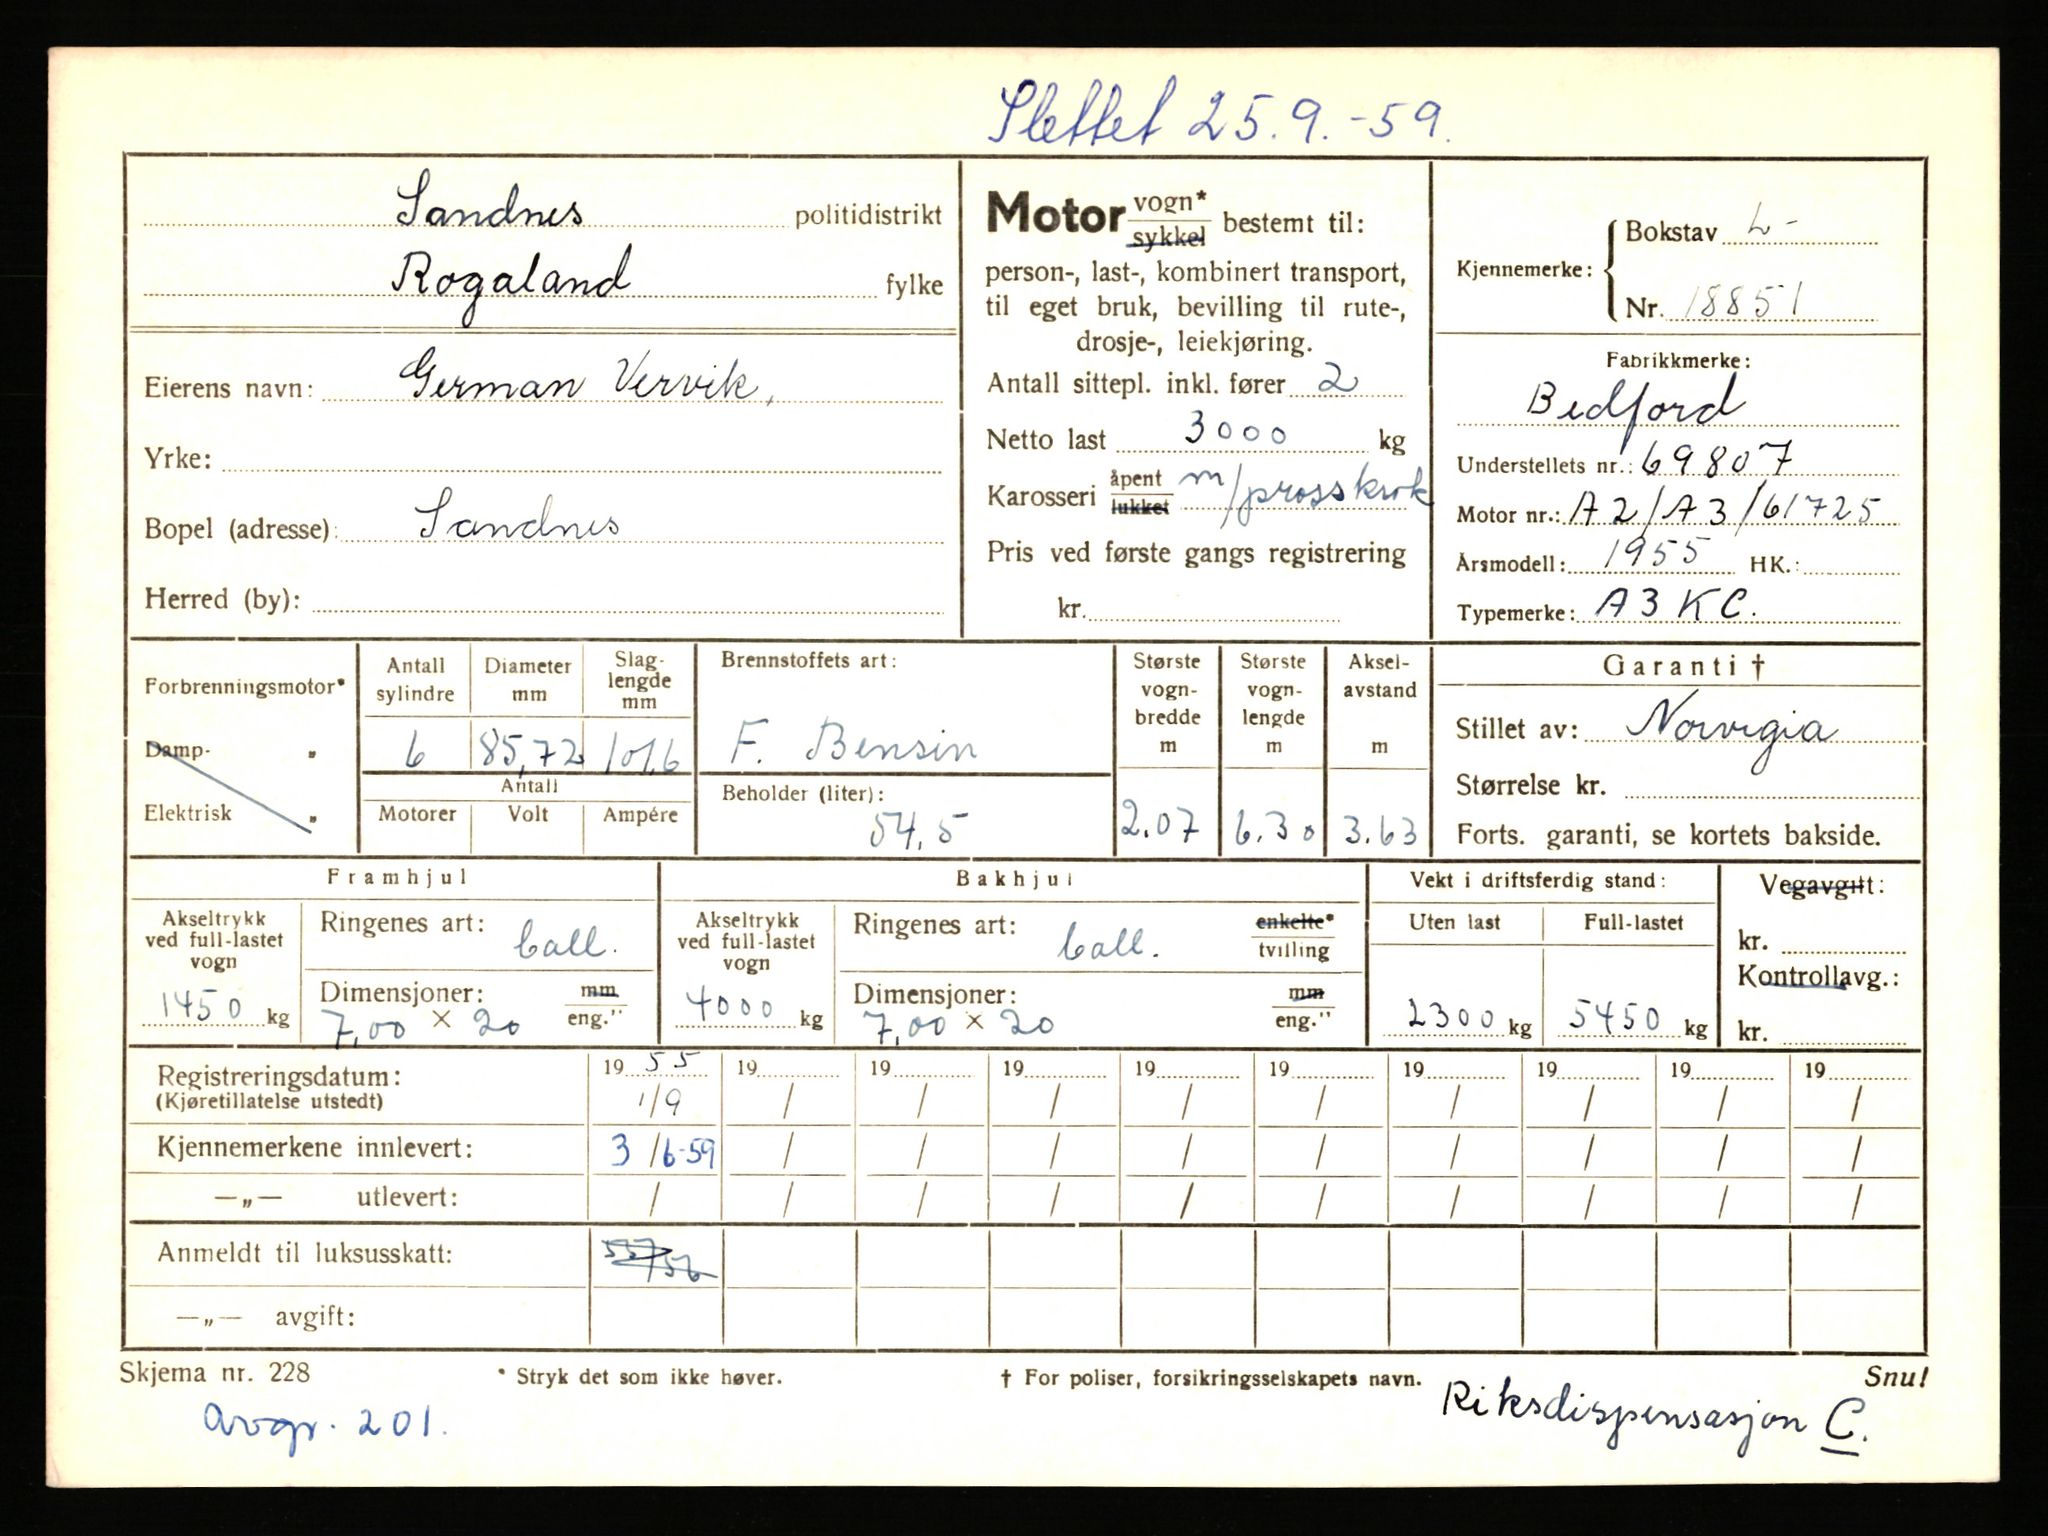 Slettet 25.9.-59.
Sandnes politidistrikt
Rogaland fylke
Eierens navn: German Vervik,
Yrke:
Bopel (adresse): Sandnes
Herred (by):
Motor vogn* / sykkel bestemt til:
person-, last-, kombinert transport,
til eget bruk, bevilling til rute-,
drosje-, leiekjøring.
Antall sittepl. inkl. fører 2
Netto last 3000 kg
Karosseri åpent / lukket m/prosskrok
Pris ved første gangs registrering
kr.
Kjennemerke: Bokstav L-
Nr. 18851
Fabrikkmerke:
Bedford
Understellets nr.: 69807
Motor nr.: A2/A3/61725
Årsmodell: 1955 HK.:
Typemerke: A3KC.
Forbrenningsmotor*
Damp- "
Elektrisk "
Antall sylindre
6
Diameter mm
85,72
Slag-lengde mm
101,6
Antall
Motorer Volt Ampére
Brennstoffets art:
F. Bensin
Beholder (liter):
54,5
Største vogn-bredde m
2.07
Største vogn-lengde m
6.30
Aksel-avstand m
3.63
Garanti †
Stillet av: Norvegia
Størrelse kr.
Forts. garanti, se kortets bakside.
Framhjul
Akseltrykk ved full-lastet vogn
1450 kg
Ringenes art: Ball.
Dimensjoner: mm / eng."
7,00 x 20
Bakhjul
Akseltrykk ved full-lastet vogn
4000 kg
Ringenes art: Ball. enkelte* / tvilling
Dimensjoner: mm / eng."
7,00 x 20
Vekt i driftsferdig stand:
Uten last Full-lastet
2300 kg 5450 kg
Vegavgift:
kr.
Kontrollavg.:
kr.
Registreringsdatum: 1955 19 19 19 19 19 19 19 19 19
(Kjøretillatelse utstedt) 1/9 / / / / / / / / /
Kjennemerkene innlevert: 3/6-59 / / / / / / / / /
—„— utlevert: / / / / / / / / / /
Anmeldt til luksusskatt: 557/56
—„— avgift:
Skjema nr. 228 * Stryk det som ikke høver. † For poliser, forsikringsselskapets navn. Snu!
Avgr. 201. Riksdispensasjon C.